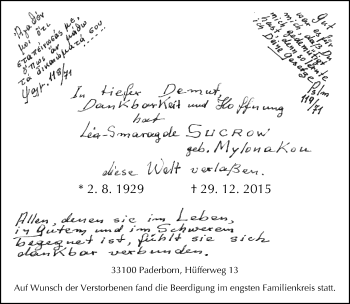 Ἀγαθόν
μοι ὅτι
ἐταπείνωσάς με,
ὅπως ἂν μάθω
τὰ δικαιώματά σου
Ψαλ. 118/71
Gut
war es für
mich, daß Du
mich gedemütigt
hast, damit ich lernte
Deine Gesetze
Psalm
119/71
In tiefer Demut,
Dankbarkeit und Hoffnung
hat
Léa-Smaragde SUCROW
geb. Mylonakou
diese Welt verlaßen.
* 2. 8. 1929 † 29. 12. 2015
Allen, denen sie im Leben,
in Gutem und im Schwerem
begegnet ist, fühlt sie sich
dankbar verbunden.
33100 Paderborn, Hüfferweg 13
Auf Wunsch der Verstorbenen fand die Beerdigung im engsten Familienkreis statt.